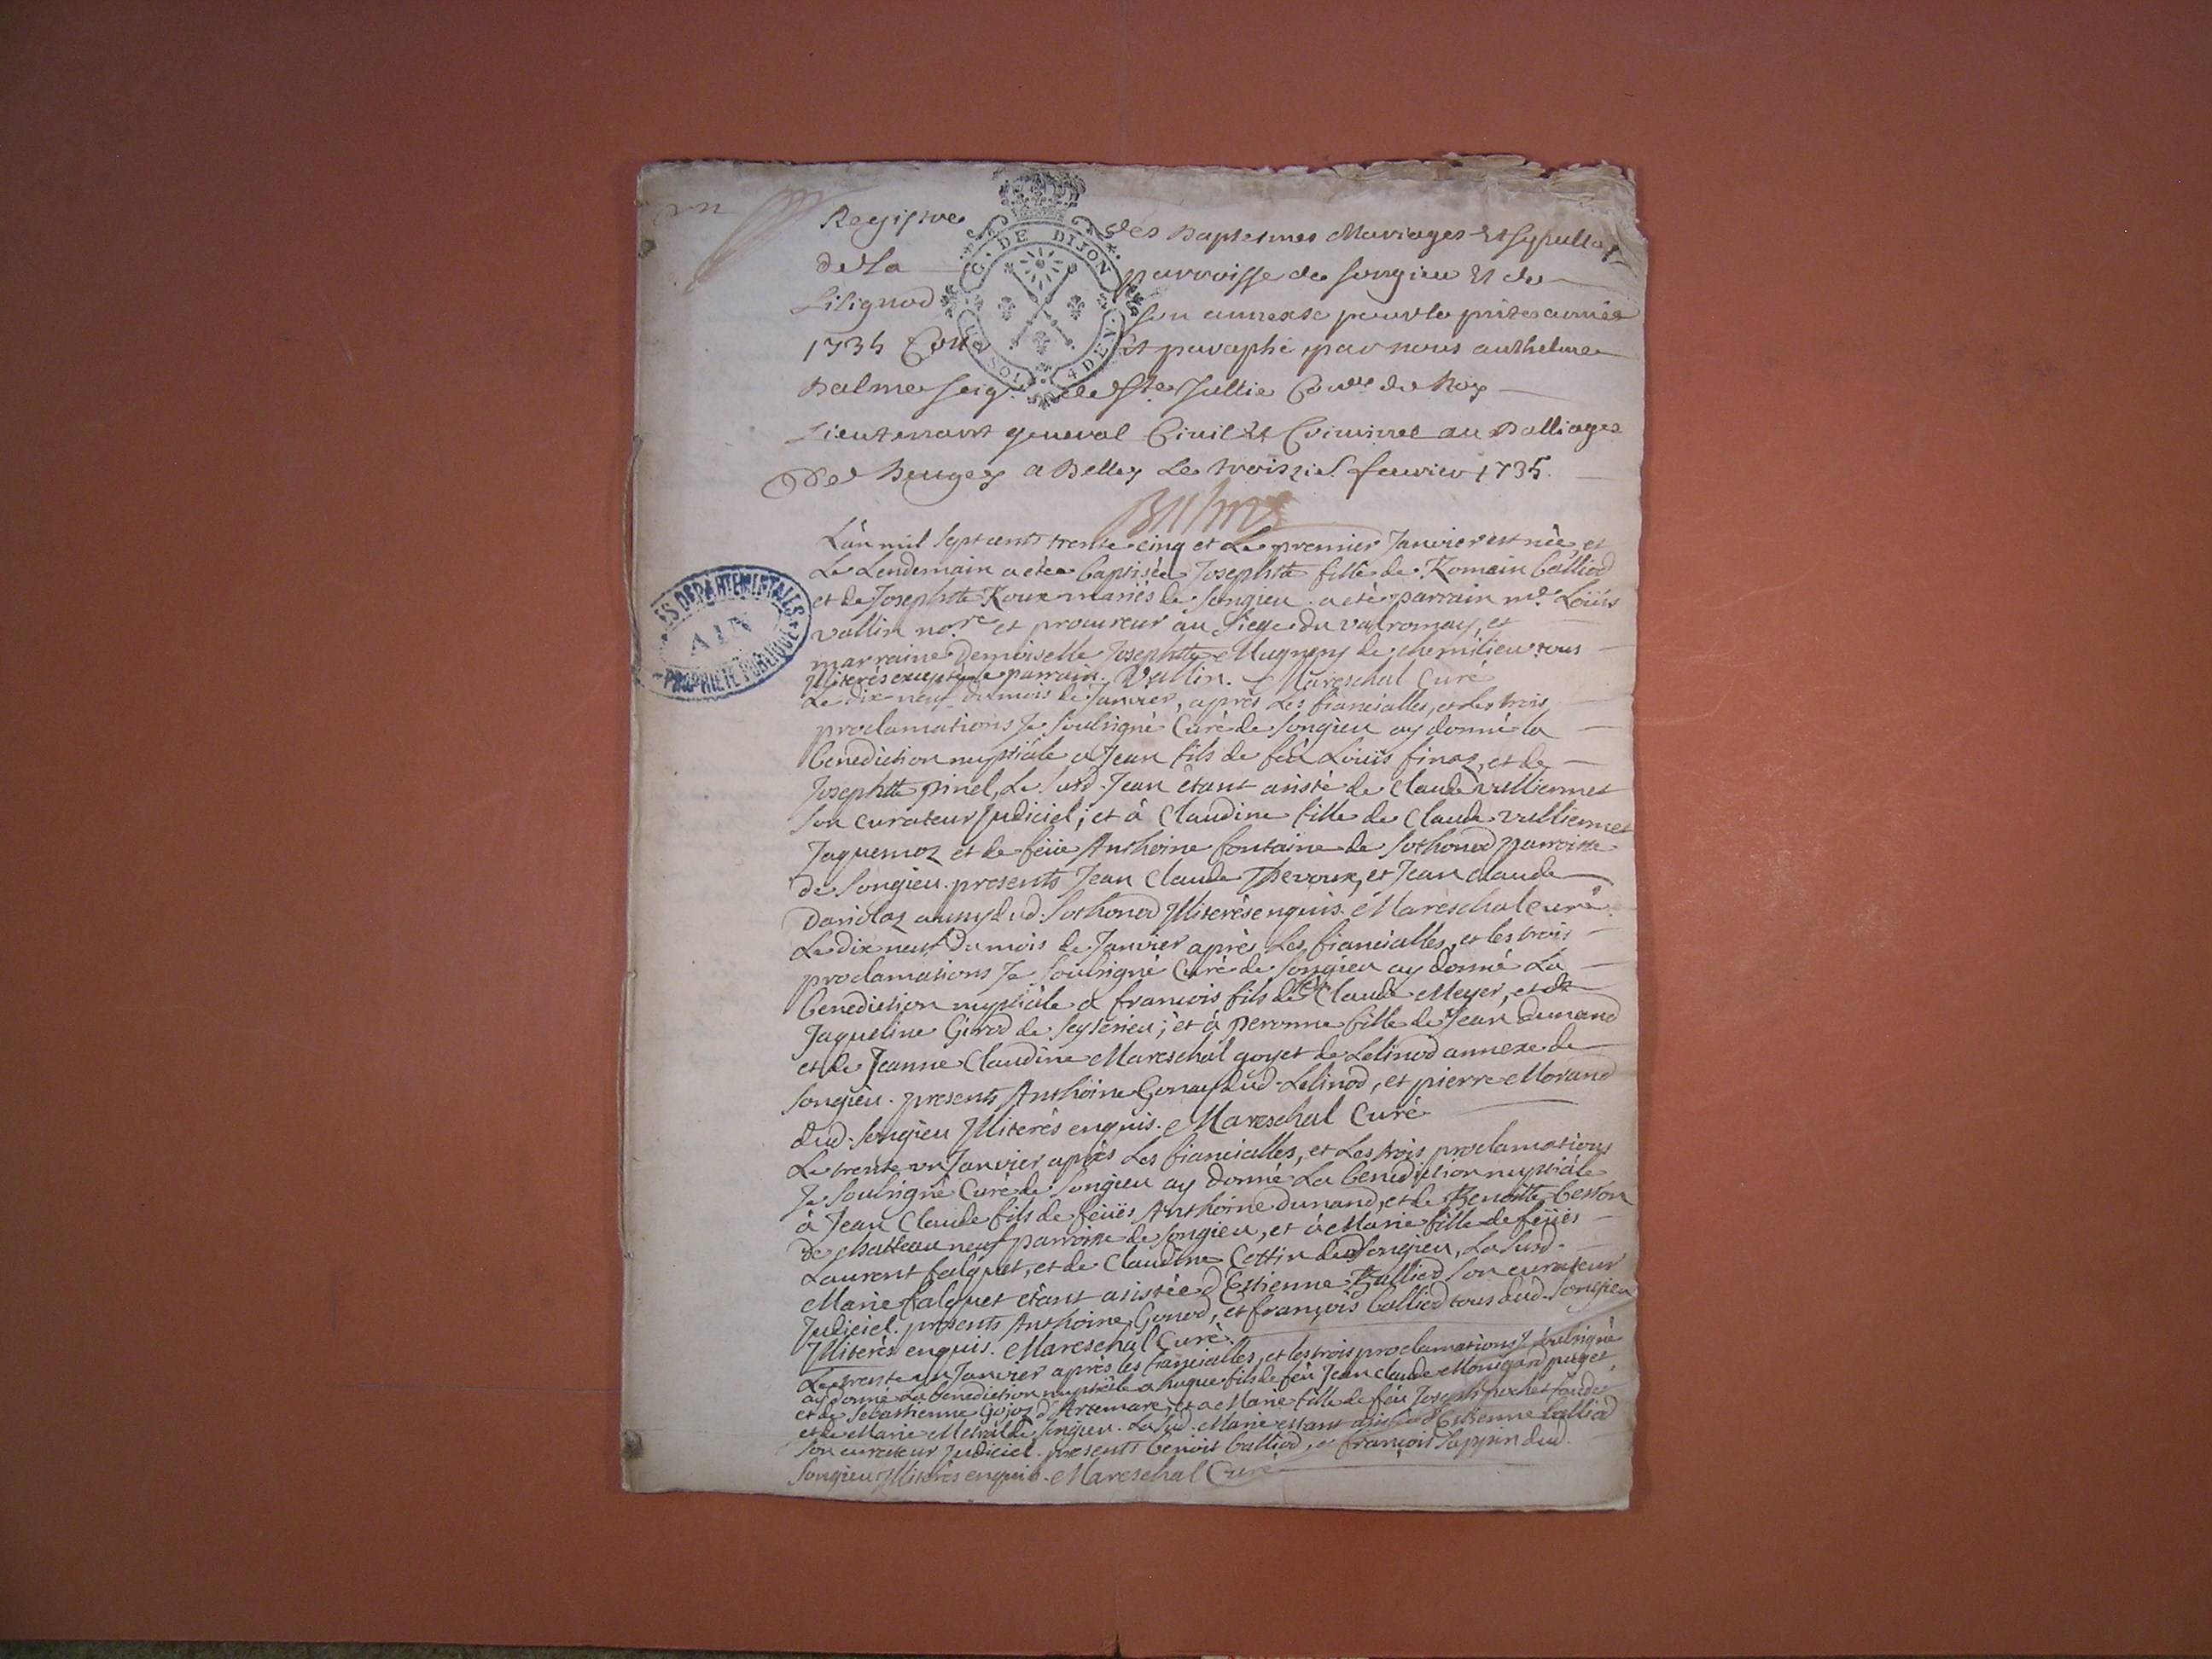 Registre des Baptesmes Mariages Et Sepultures
de La parroisse de Songieu Et de
Lilignod son annexe pour la pnte année
1735 Cotté Et paraphé par nous anthelme
Balme Seigr de Ste Jullie Coner du Roy
Lieutenant general Civil Et Criminel au Balliage
De Beugey a Belley Le troizie. fevrier 1735.
G. DE DIJON
4 DEN.
Balme
ES DEPARTEMENTALES
AIN
PROPRIETE PUBLIQUE
L'an mil sept cents trente cinq et Le premier Janvier est née, et
Le Lendemain a étée baptisée Josephtte fille de Romain balliod
et de Josephtte Roux mariés de Songieu. a été parrain mre Loüis
vallin nore et procureur au Siege du valromay, et
marraine Demoiselle Josephtte Mugnery de chemilieu tous
Illiterés excepté le parrain. Vallin. Mareschal Curé
Le dix neuf du mois de Janvier, après Les fiancialles, et Les trois
proclamations Je soubsigné Curé de Songieu ay donné la
benediction nuptiale a Jean fils de feu Loüis finoz, et de
Josephtte pinel, Le susd. Jean étant asisté de Claude vulliermet
son curateur Judiciel; et à Claudine fille de Claude vulliermet
Jaquemoz et de feüe Anthoine fontaine de Sothonod parroisse
de Songieu. presents Jean Claude Thevoux, et Jean Claude
Dariolaz dud. Sothonod Illiterés enquis. Mareschal curé.
Le dix neuf Du mois de Janvier après Les fiancialles, et les trois
proclamations Je soubsigné Curé de Songieu ay donné La
benediction nuptiale a francois fils de Claude Meyer, et de
Jaqueline Girod de Seyserieu; et à peronne fille de Jean dunand
et de Jeanne Claudine Mareschal goyet de Lelinod annexe de
Songieu. presents Anthoine Gonay dud. Lelinod, et pierre Morand
dud. Songieu Illiterés enquis. Mareschal Curé
Le trente un Janvier après Les fiancialles, et Les trois proclamations
Je soubsigné Curé de Songieu ay donné La benediction nuptiale
à Jean Claude fils de feüés Anthoine dunand, et de Benoitte besson
de chatteauneuf parroisse de Songieu, et à Marie fille de feüés
Laurent falquet, et de Claudine Cottin dud. Songieu, La susd.
Marie falquet étant asistée d'Estienne Balliod son curateur
Judiciel. presents Anthoine Gonod, et françois balliod tous dud. Songieu
Illiterés enquis. Mareschal Curé.
Le trente un Janvier après les fiancialles, et les trois proclamations Je soubsigné
ay donné La benediction nuptiale a hugue fils de feu Jean Claude puget
et de Sebastienne Gojoz d'Artemare, et a Marie fille de feu Joseph
et de Marie Metral de Songieu. La susd. Marie estant asistée d'Estienne balliod
son curateur Judiciel. presents benoit balliod, et françois Sappin dud.
Songieu Illiterés enquis. Mareschal Curé